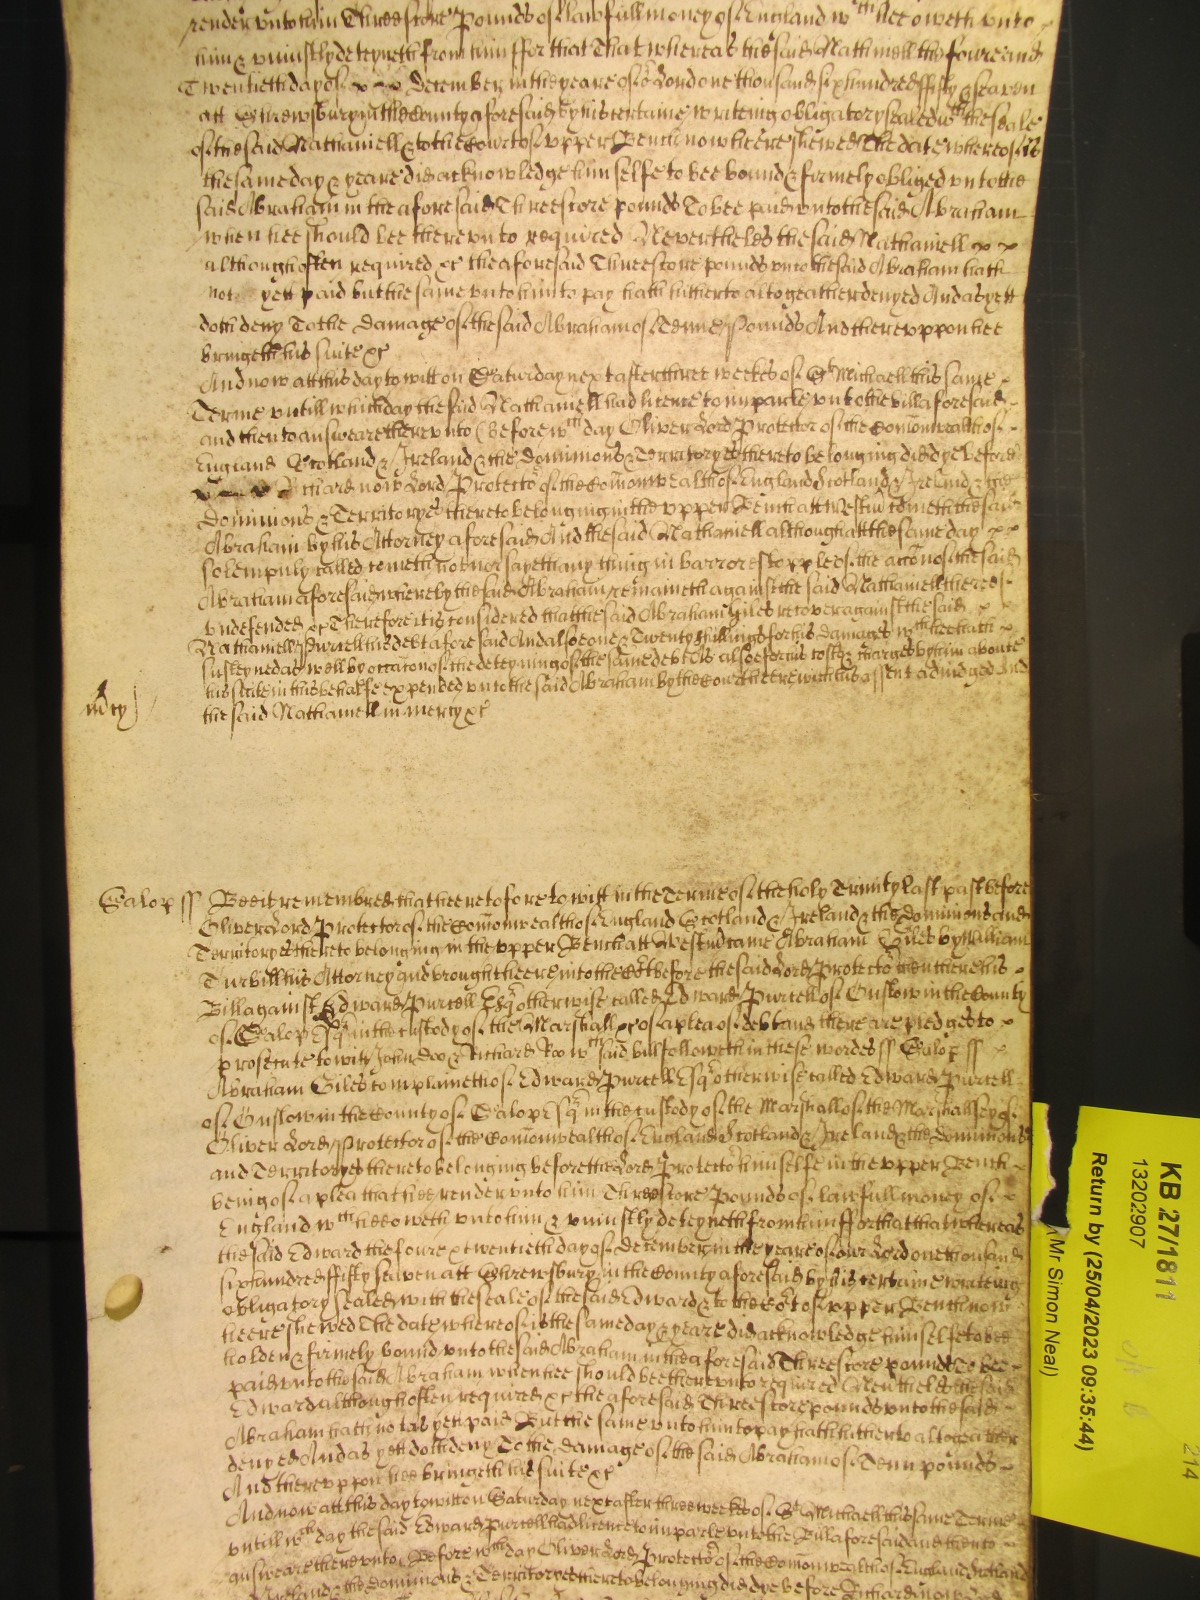 render unto him Threescore Pounds of lawfull money of England wch hee oweth unto
him & uniustly deteyneth from him ffor that That whereas the said Nathaniell the foure and
Twentieth day of December in the yeare of or Lord one thousand six hundred fifty & seaven
att Shrewsbury in the County aforesaid by his certaine writeing obligatory sealed wth the seale
of the said Nathaniell & to the Cowrt of upper Bench now heere shewed The date whereof is
the same day & yeare did acknowledge himselfe to bee bound & firmely obliged unto the
said Abraham in the aforesaid Threescore pounds To bee paid unto the said Abraham
when hee should bee thereunto required Neverthelesse the said Nathaniell
although often required &c the aforesaid Threescore pounds unto the said Abraham hath
not yett paid but the same unto him to pay hath hitherto altogeather denyed And as yett
doth deny To the Damage of the said Abraham of Tenne Pounds And thereuppon hee
bringeth his suite &c
And now att this day to witt on Saturday next after three weekes of St Michaell this same
Terme untill which day the said Nathaniell had licence to imparle unto the bill aforesaid
and then to answeare thereunto Before wch day Oliver Lord Protector of the Comonwealth of
England Scotland & Ireland & the Dominions & Territoryes thereto belonging did dye before
Richard now Lord Protector of the Comonwealth of England Scotland & Ireland & the
Dominions & Territoryes thereto belonging in the upper Bench att Westmr cometh the said
Abraham by his Attorney aforesaid And the said Nathaniell although att the same day
solempnly called cometh not nor sayeth any thing in barr or estopple of the accon of the said
Abraham aforesaid whereby the said Abraham remaineth against the said Nathaniell thereof
undefended &c Therefore it is considered that the said Abraham Giles recover against the said
Nathaniell Purcell his debt aforesaid And alsoe one & Twenty shillings for his damages wch hee hath
susteyned as well by occacon of the deteyning of the same debt As alsoe for his costs & charges by him aboute
his suite in this behalfe expended unto the said Abraham by the Court heere with his assent adiudged And
the said Nathaniell in mercy &c
mcy
Salop ss Bee it remembred that heeretofore to witt in the Terme of the holy Trinity last past before
Oliver Lord Protector of the Comonwealth of England Scotland & Ireland & the Dominions and
Territoryes thereto belonging in the upper Bench att Westmr came Abraham Giles by William
Turvill his Attorney and brought heere into the Cort before the said Lord Protector then there his
Bill against Edward Purcell Esqr otherwise called Edward Purcell of Onslow in the County
of Salop Esqr in the custody of the Marshall &c of a plea of debt and there are pledges to
prosecute to witt John Doo & Richard Roo wch said bill followeth in these wordes ss Salop ss
Abraham Giles complaineth of Edward Purcell Esqr otherwise called Edward Purcell
of Onslow in the County of Salop Esqr in the custody of the Marshall of the Marshallsey of
Oliver Lord Protector of the Comonwealth of England Scotland & Ireland & the Dominions
and Territoryes thereto belonging before the Lord Protector himselfe in the upper Bench
being of a plea that hee render unto him Threescore Pounds of lawfull money of
England wch hee oweth unto him & uniustly deteyneth from him ffor that that whereas
the said Edward the foure & twentieth day of December in the yeare of our Lord one thousand
six hundred fifty seaven att Shrewsbury in the County aforesaid by his certaine writeing
obligatory sealed with the seale of the said Edward & to the Cort of upper Bench now
heere shewed The date whereof is the same day & yeare did acknowledge himselfe to bee
holden & firmely bound unto the said Abraham in the aforesaid Threescore pounds To bee
paid unto the said Abraham when hee should bee thereunto required Neverthelesse the said
Edward although often required &c the aforesaid Threescore pounds unto the said
Abraham hath not as yett paid But the same unto him to pay hath hitherto altogeather
denyed And as yett doth deny To the damage of the said Abraham of Tenn pounds
And thereuppon hee bringeth his suite &c
And now att this day to witt on Saturday next after three weekes of St Michaell this same Terme
untill wch day the said Edward Purcell had licence to imparle unto the Bill aforesaid and then to
answeare thereunto Before wch day Oliver Lord Protector of the Comonwealth of England Scotland
& Ireland & the Dominions & Territoryes thereto belonging did dye before Richard now Lord
KB 27/1811
13202907
Return by (25/04/2023 09:35:44)
Mr Simon Neal)
214